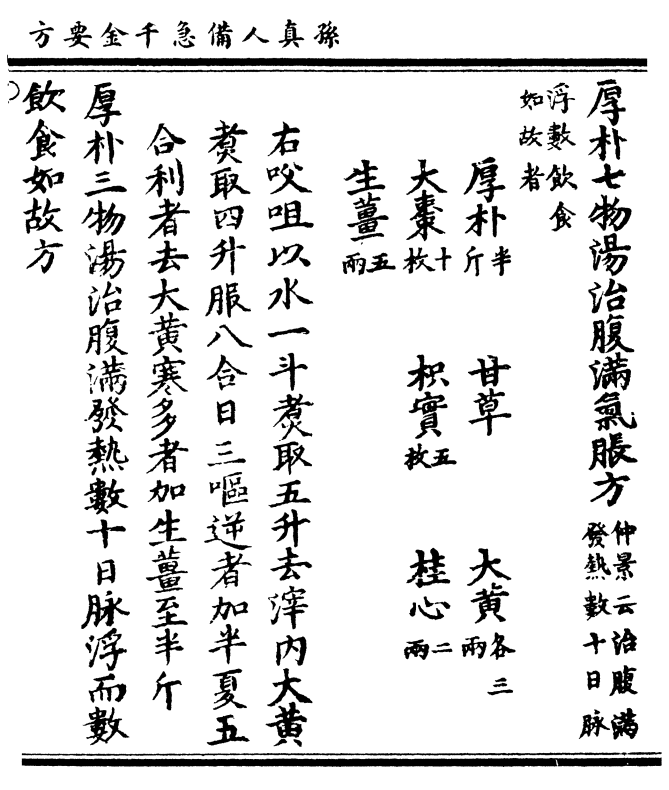 孫真人備急千金要方
厚朴七物湯治腹滿氣脹方仲景云治腹滿發熱數十日脉
浮數飲食如故者
厚朴半斤 甘草 大黃各三兩
大棗十枚 枳實五枚 桂心二兩
生薑五兩
右㕮咀以水一斗煑取五升去滓内大黃
煑取四升服八合日三嘔逆者加半夏五
合利者去大黃寒多者加生薑至半斤
厚朴三物湯治腹滿發熱數十日脉浮而數
飲食如故方